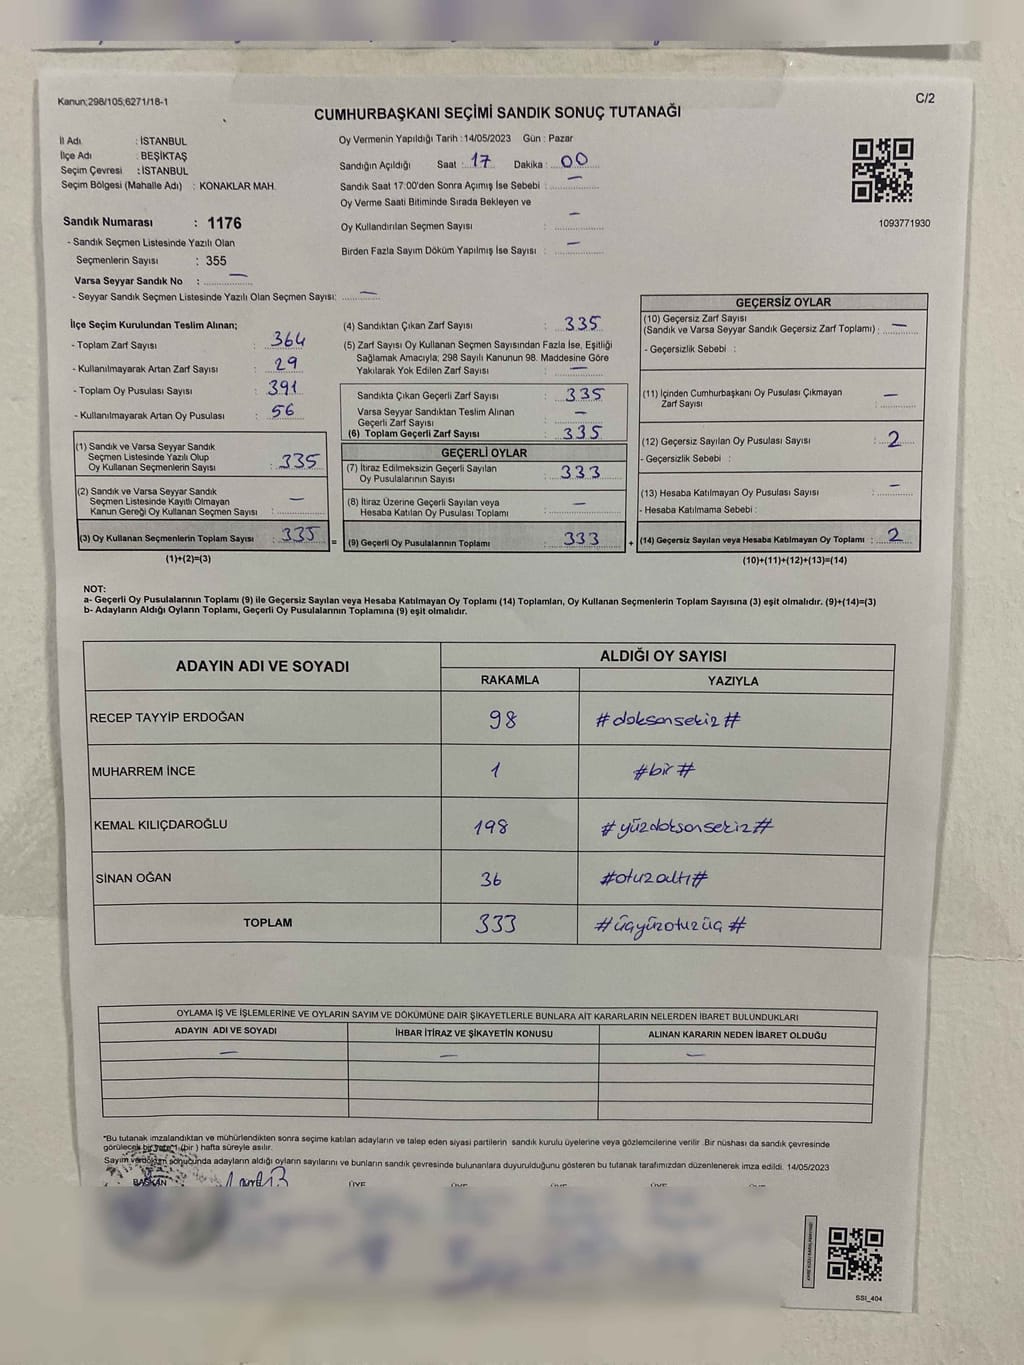 Kanun;298/105,6271/18-1
C/2
CUMHURBAŞKANI SEÇİMİ SANDIK SONUÇ TUTANAĞI
İl Adı : İSTANBUL
İlçe Adı : BEŞİKTAŞ
Seçim Çevresi : İSTANBUL
Seçim Bölgesi (Mahalle Adı) : KONAKLAR MAH.
Sandık Numarası : 1176
- Sandık Seçmen Listesinde Yazılı Olan
Seçmenlerin Sayısı : 355
Varsa Seyyar Sandık No : —
- Seyyar Sandık Seçmen Listesinde Yazılı Olan Seçmen Sayısı; —
Oy Vermenin Yapıldığı Tarih :14/05/2023 Gün : Pazar
Sandığın Açıldığı Saat : 17 Dakika : 00
Sandık Saat 17:00'den Sonra Açımış İse Sebebi : —
Oy Verme Saati Bitiminde Sırada Bekleyen ve
Oy Kullandırılan Seçmen Sayısı : —
Birden Fazla Sayım Döküm Yapılmış İse Sayısı : —
1093771930
İlçe Seçim Kurulundan Teslim Alınan;
- Toplam Zarf Sayısı : 364
- Kullanılmayarak Artan Zarf Sayısı : 29
- Toplam Oy Pusulası Sayısı : 391
- Kullanılmayarak Artan Oy Pusulası : 56
(1) Sandık ve Varsa Seyyar Sandık
Seçmen Listesinde Yazılı Olup
Oy Kullanan Seçmenlerin Sayısı : 335
(2) Sandık ve Varsa Seyyar Sandık
Seçmen Listesinde Kayıtlı Olmayan
Kanun Gereği Oy Kullanan Seçmen Sayısı : —
(3) Oy Kullanan Seçmenlerin Toplam Sayısı : 335
(1)+(2)=(3)
(4) Sandıktan Çıkan Zarf Sayısı : 335
(5) Zarf Sayısı Oy Kullanan Seçmen Sayısından Fazla İse, Eşitliği
Sağlamak Amacıyla; 298 Sayılı Kanunun 98. Maddesine Göre
Yakılarak Yok Edilen Zarf Sayısı : —
Sandıkta Çıkan Geçerli Zarf Sayısı : 335
Varsa Seyyar Sandıktan Teslim Alınan
Geçerli Zarf Sayısı : —
(6) Toplam Geçerli Zarf Sayısı : 335
GEÇERLİ OYLAR
(7) İtiraz Edilmeksizin Geçerli Sayılan
Oy Pusulalarının Sayısı : 333
(8) İtiraz Üzerine Geçerli Sayılan veya
Hesaba Katılan Oy Pusulası Toplamı : —
= (9) Geçerli Oy Pusulalarının Toplamı : 333
GEÇERSİZ OYLAR
(10) Geçersiz Zarf Sayısı
(Sandık ve Varsa Seyyar Sandık Geçersiz Zarf Toplamı) : —
- Geçersizlik Sebebi :
(11) İçinden Cumhurbaşkanı Oy Pusulası Çıkmayan
Zarf Sayısı : —
(12) Geçersiz Sayılan Oy Pusulası Sayısı : 2
- Geçersizlik Sebebi :
(13) Hesaba Katılmayan Oy Pusulası Sayısı : —
- Hesaba Katılmama Sebebi :
+ (14) Geçersiz Sayılan veya Hesaba Katılmayan Oy Toplamı : 2
(10)+(11)+(12)+(13)=(14)
NOT:
a- Geçerli Oy Pusulalarının Toplamı (9) ile Geçersiz Sayılan veya Hesaba Katılmayan Oy Toplamı (14) Toplamları, Oy Kullanan Seçmenlerin Toplam Sayısına (3) eşit olmalıdır. (9)+(14)=(3)
b- Adayların Aldığı Oyların Toplamı, Geçerli Oy Pusulalarının Toplamına (9) eşit olmalıdır.
ADAYIN ADI VE SOYADI
ALDIĞI OY SAYISI
RAKAMLA YAZIYLA
RECEP TAYYİP ERDOĞAN 98 #doksansekiz#
MUHARREM İNCE 1 #bir#
KEMAL KILIÇDAROĞLU 198 #yüzdoksansekiz#
SİNAN OĞAN 36 #otuzaltı#
TOPLAM 333 #üçyüzotuzüç#
OYLAMA İŞ VE İŞLEMLERİNE VE OYLARIN SAYIM VE DÖKÜMÜNE DAİR ŞİKAYETLERLE BUNLARA AİT KARARLARIN NELERDEN İBARET BULUNDUKLARI
ADAYIN ADI VE SOYADI İHBAR İTİRAZ VE ŞİKAYETİN KONUSU ALINAN KARARIN NEDEN İBARET OLDUĞU
— — —
"Bu tutanak imzalandıktan ve mühürlendikten sonra seçime katılan adayların ve talep eden siyasi partilerin sandık kurulu üyelerine veya gözlemcilerine verilir .Bir nüshası da sandık çevresinde
görülecek bir yere"1 (bir ) hafta süreyle asılır.
Sayım ve döküm sonucunda adayların aldığı oyların sayılarını ve bunların sandık çevresinde bulunanlara duyurulduğunu gösteren bu tutanak tarafımızdan düzenlenerek imza edildi. 14/05/2023
BAŞKAN ÜYE ÜYE ÜYE ÜYE
SSI_404